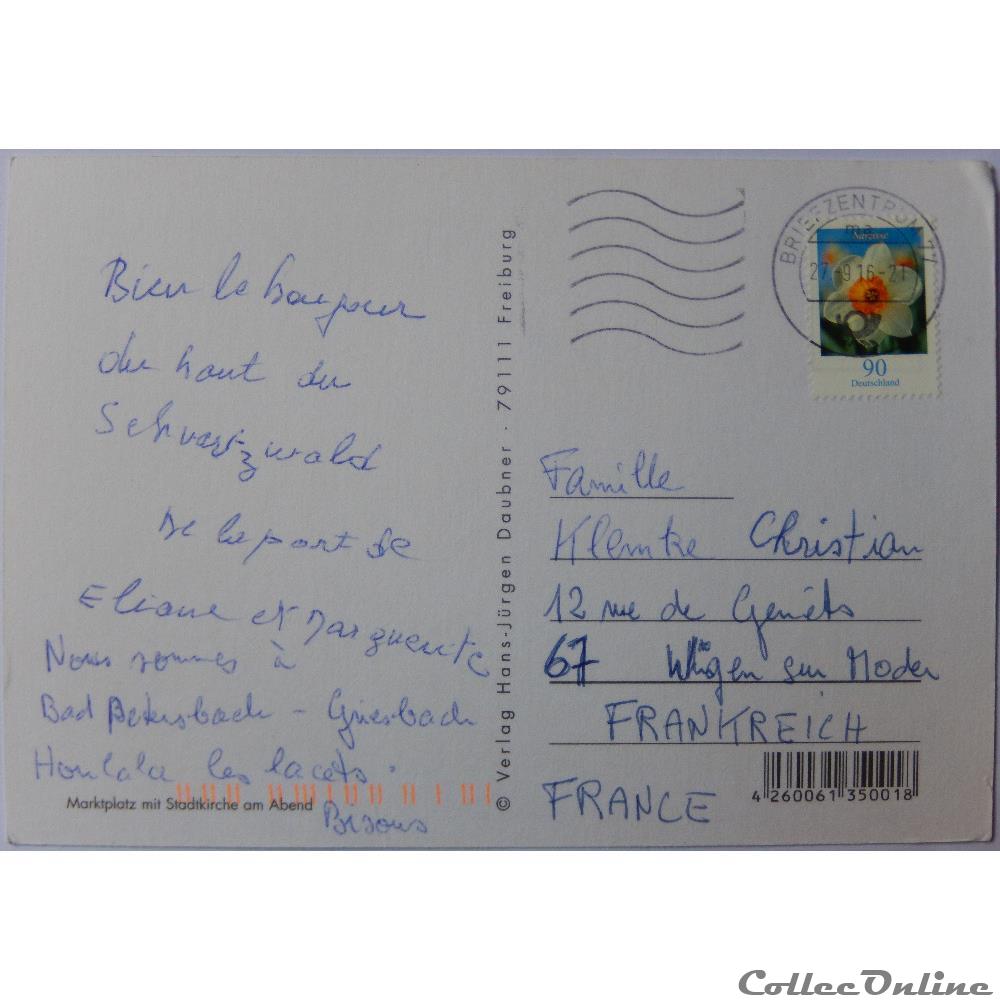 Bien le bonjour
du haut du
Schvartzwald
De la part de
Eliane et Marguerite
Nous sommes à
Bad Petersbach - Griesbach
Houlala les lacets.
Bisous
Marktplatz mit Stadtkirche am Abend
© Verlag Hans-Jürgen Daubner · 79111 Freiburg
BRIEFZENTRUM 77
ma
27.-9.16-21
Narzisse
90
Deutschland
Famille
Klemke Christian
12 rue de Genêts
67 Wingen sur Moder
FRANKREICH
FRANCE
4 260061 350018
CollecOnline